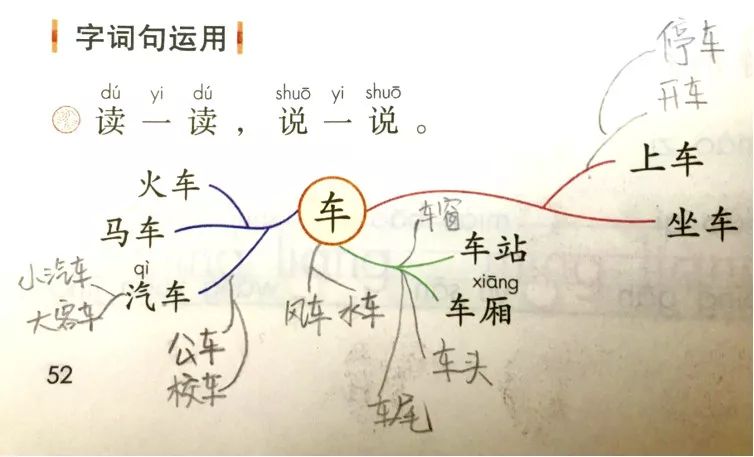 字词句运用
dú yi dú shuō yi shuō
读一读，说一说。
停车
开车
火车
车
上车
马车
坐车
车窗
车站
qì
小汽车
汽车
xiāng
车厢
大客车
风车 水车
公车
车头
52
校车
车尾